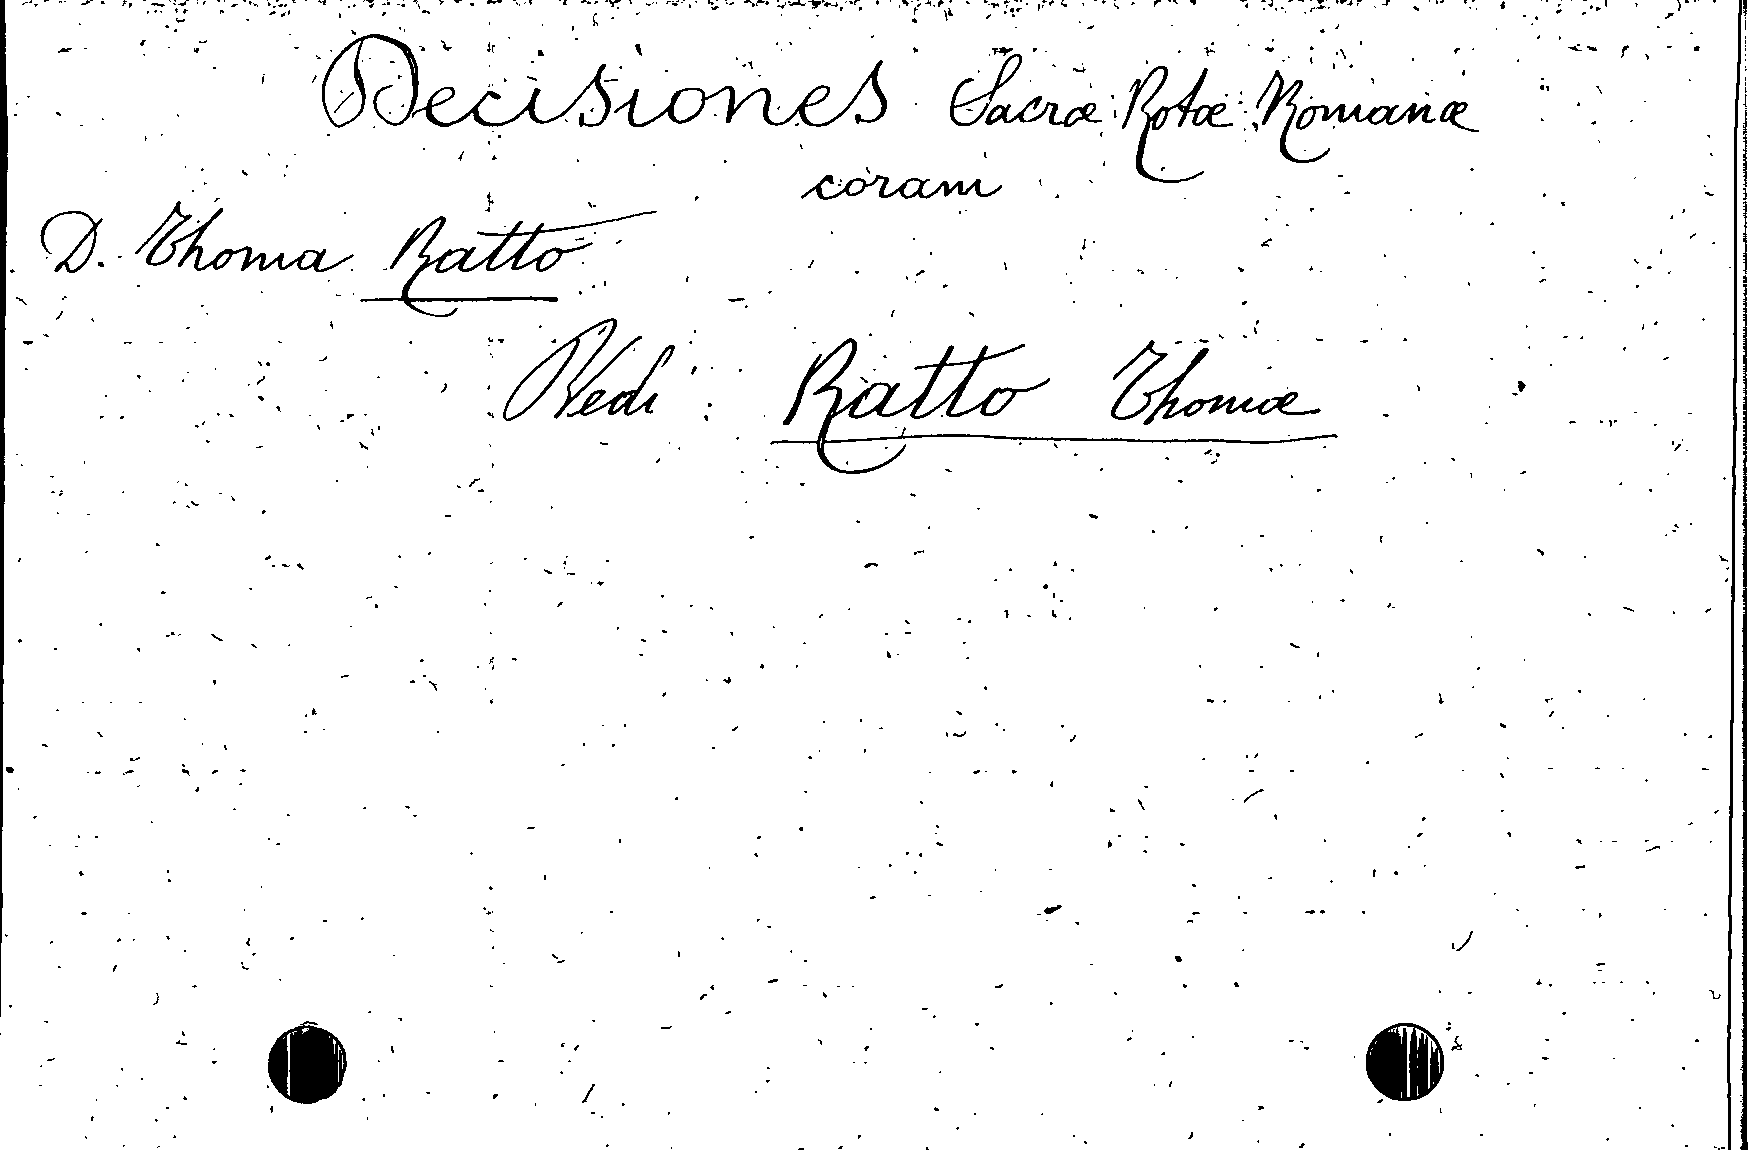 Decisiones Sacræ Rotæ Romanæ
coram
D. Thoma Ratto
Vedi : Ratto Thomæ